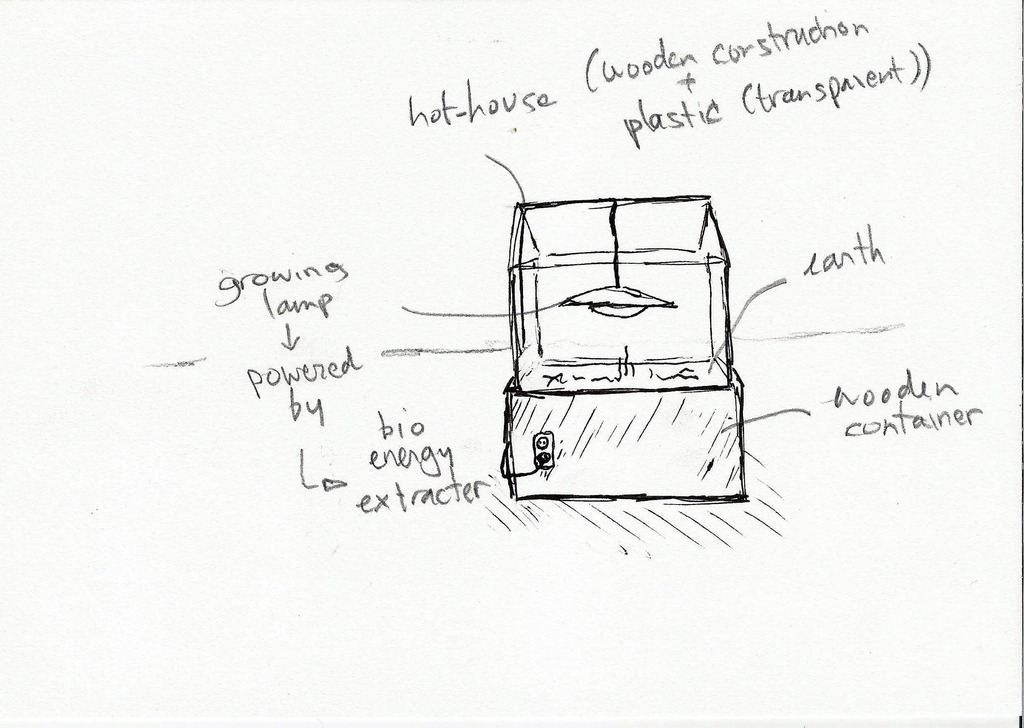 hot-house (wooden construction
+
plastic (transparent))
growing
lamp
↓
powered
by
bio
energy
extracter
earth
wooden
container